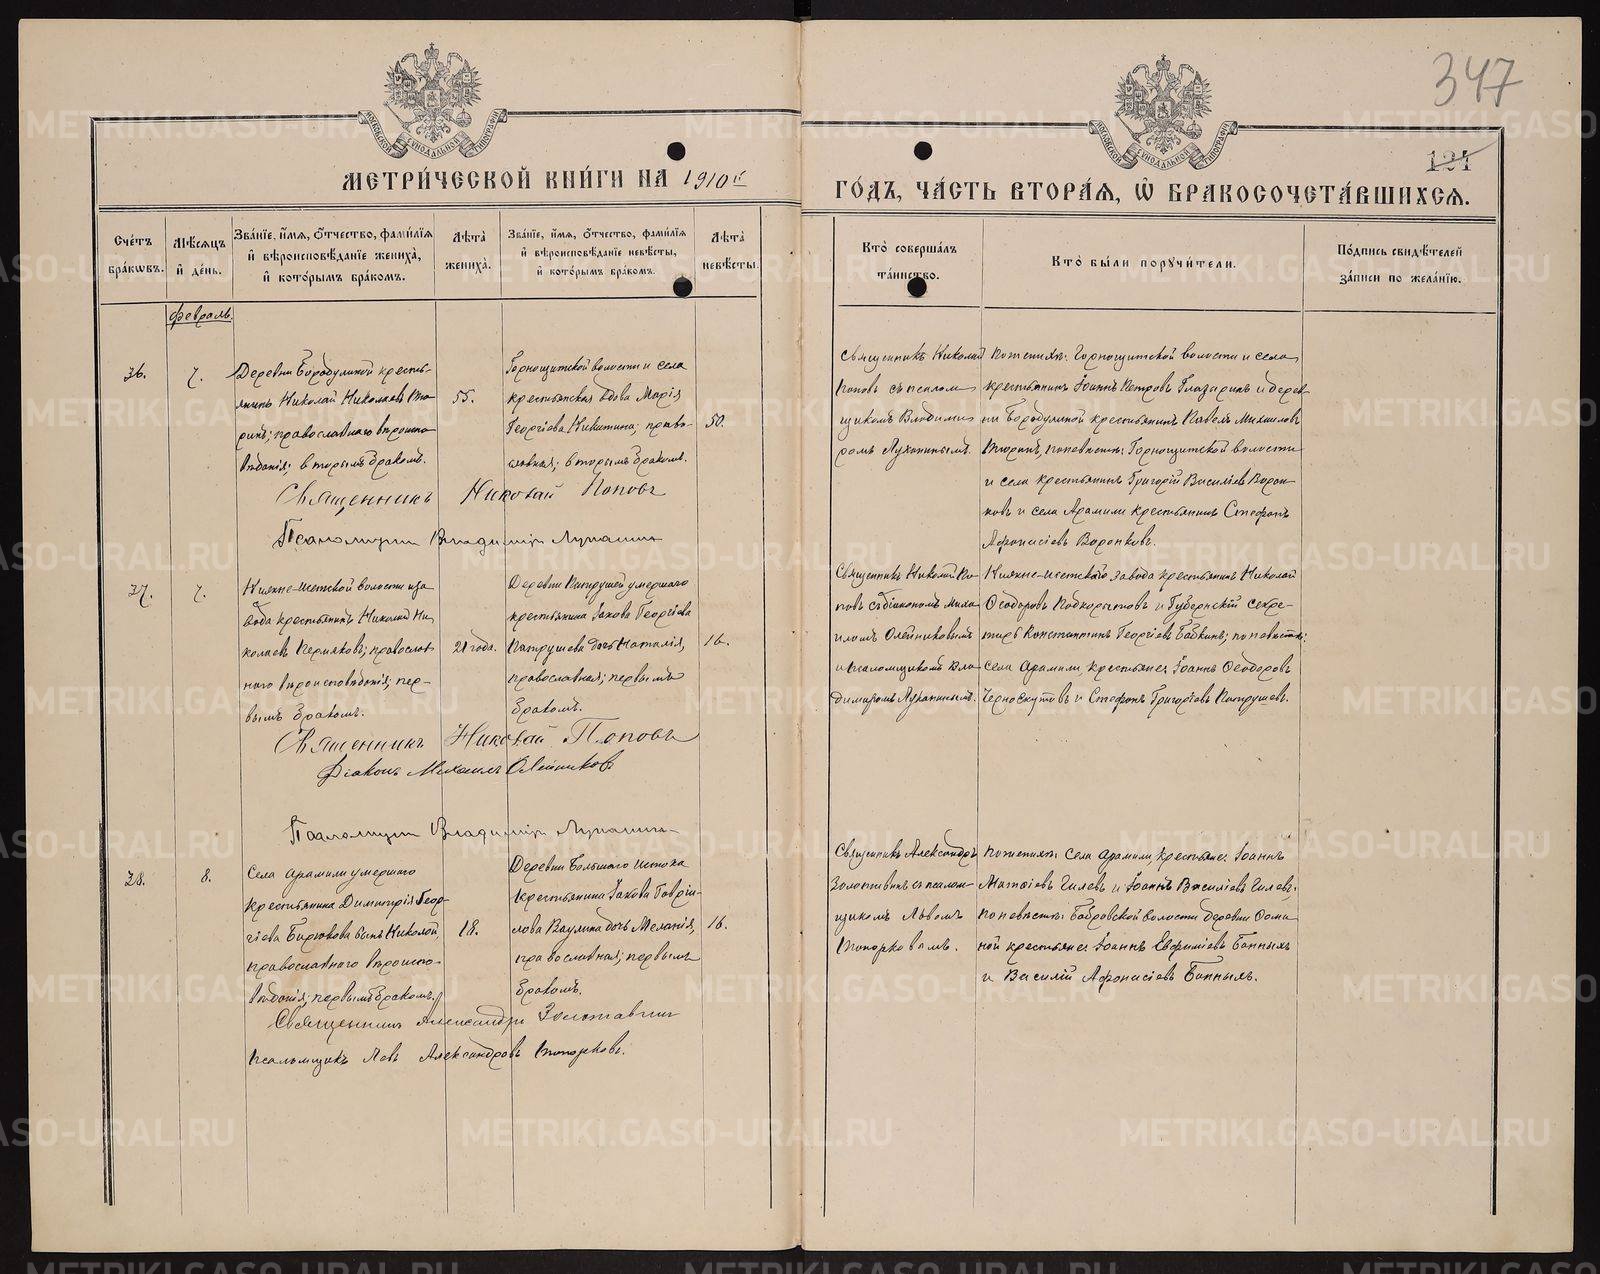 347
121
МОСКОВСКОЙ СѴНОДАЛЬНОЙ ТИПОГРАФІИ
МОСКОВСКОЙ СѴНОДАЛЬНОЙ ТИПОГРАФІИ
МЕТРИ́ЧЕСКОЙ КНИ́ГИ НА 1910й
ГО́ДЪ, ЧА́СТЬ ВТОРА́Я, Ѡ БРАКОСОЧЕТА́ВШИХСЯ.
Сче́тъ бра́кѡвъ.
Мѣ́сяцъ и҆ де́нь.
Зва́нїе, и҆́мя, ѻ҆́тчество, фами́лїя и҆ вѣроисповѣ́данїе жениха̀, и҆ кото́рымъ бра́комъ.
Лѣ́та жениха̀.
Зва́нїе, и҆́мя, ѻ҆́тчество, фами́лїя и҆ вѣроисповѣ́данїе невѣ́сты, и҆ кото́рымъ бра́комъ.
Лѣ́та невѣ́сты.
Кто̀ соверша́лъ та́инство.
Кто̀ бы́ли порꙋчи́тели.
По́дпись свидѣ́телей за́писи по жела́нїю.
Февраль.
36.
7.
Деревни Бородулиной кресть-
янинъ Николай Николаевъ Вто-
ринъ; православнаго вѣроиспо-
вѣданія; вторымъ бракомъ.
55.
Горнощитской волости и села
крестьянская вдова Марія
Георгіева Никитина; право-
славная; вторымъ бракомъ.
50.
Священникъ Николай
Поповъ съ псалом-
щикомъ Владими-
ромъ Лупанинымъ.
По женихѣ: Горнощитской волости и села
крестьянинъ Іоаннъ Петровъ Глазаринъ и дерев-
ни Бородулиной крестьянинъ Павелъ Михаиловъ
Вторинъ, по невѣстѣ: Горнощитской волости
и села крестьянинъ Григорій Василіевъ Ворон-
ковъ и села Арамили крестьянинъ Стефанъ
Афанасіевъ Воронковъ.
Священникъ Николай Поповъ
Псаломщикъ Владиміръ Лупанинъ
37.
7.
Нижне-Исетской волости и за-
вода крестьянинъ Николай Ни-
колаевъ Пермяковъ; православ-
наго вѣроисповѣданія; пер-
вымъ бракомъ.
21 года.
Деревни Патрушей умершаго
крестьянина Іакова Георгіева
Патрушева дочь Наталія,
православная; первымъ
бракомъ.
16.
Священникъ Николай По-
повъ съ діакономъ Миха-
иломъ Олейниковымъ
и псаломщикомъ Вла-
димиромъ Лупанинымъ.
Нижне-Исетскаго завода крестьянинъ Николай
Ѳеодоровъ Подкорытовъ и Губернскій секре-
тарь Константинъ Георгіевъ Бабкинъ; по невѣстѣ:
села Арамили, крестьяне: Іоаннъ Ѳеодоровъ
Черноскутовъ и Стефанъ Григоріевъ Патрушевъ.
Священникъ Николай Поповъ
Діаконъ Михаилъ Олейниковъ
Псаломщикъ Владиміръ Лупанинъ
38.
8.
Села Арамили умершаго
крестьянина Димитрія Геор-
гіева Бирюкова сынъ Николай,
православнаго вѣроиспо-
вѣданія; первымъ бракомъ.
18.
Деревни Большаго Истока
крестьянина Іакова Гаврии-
лова Ваулина дочь Меланія,
православная; первымъ
бракомъ.
16.
Священникъ Александръ
Золотавинъ съ псалом-
щикомъ Львомъ
Топорковымъ.
По женихѣ: села Арамили, крестьяне: Іоаннъ
Матѳіевъ Чилевъ и Іоаннъ Василіевъ Чилевъ;
по невѣстѣ: Бобровской волости деревни Ѳоми-
ной крестьяне: Іоаннъ Евфиміевъ Банныхъ
и Василій Афанасіевъ Банныхъ.
Священникъ Александръ Золотавинъ
Псаломщикъ Левъ Александровъ Топорковъ.
METRIKI.GASO-URAL.RU